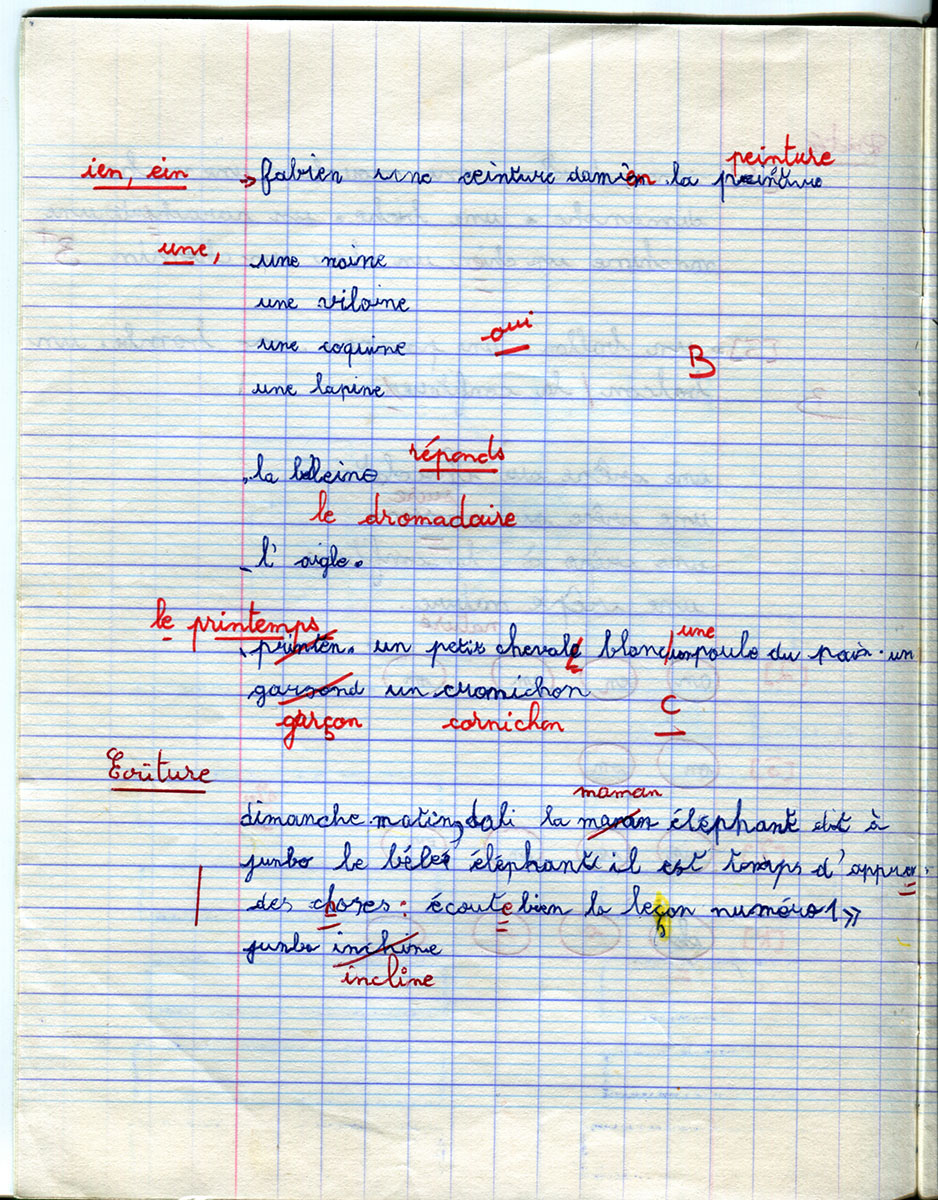 peinture
ien, ein → fabien une ceinture damien la peinture
une, une naine
une vilaine
oui
une coquine
B
une lapine
réponds
la baleine
le dromadaire
- l'aigle.
le printemps
printen. un petit cheval blanc une poule du pain. un
une
garsond un cromichon
garçon cornichon
C
Ecriture
maman
dimanche matin, dali la maman éléphant dit à
junbo le bébé éléphant il est temps d'appren
des choses: écoute bien la leçon numéro 1 »
junbo inchine
incline